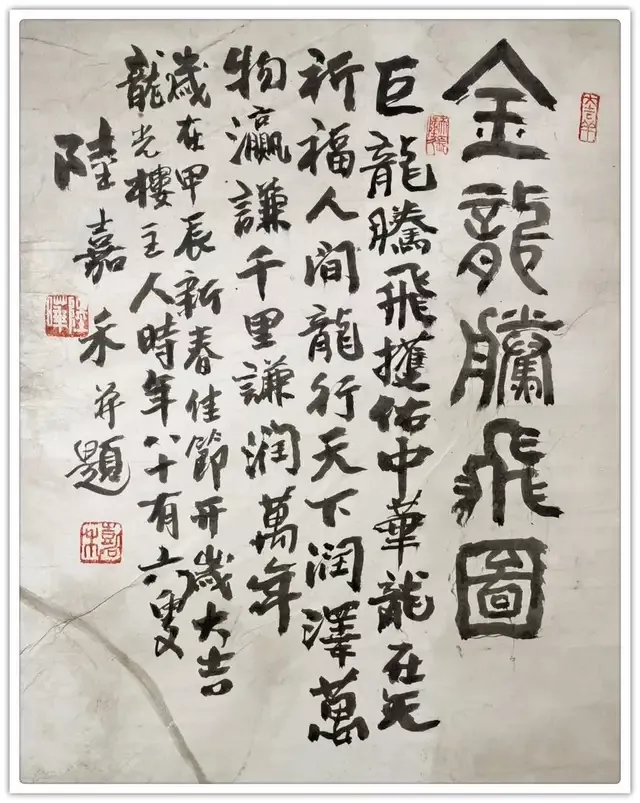 金龍騰飛圖
巨龍騰飛護佑中華龍在天
祈福人間龍行天下潤澤萬
物瀛謙千里謙潤萬年
歲在甲辰新春佳節開歲大吉
龍光樓主人時年八十有六叟
陸嘉禾并題
大吉羊
嘉禾